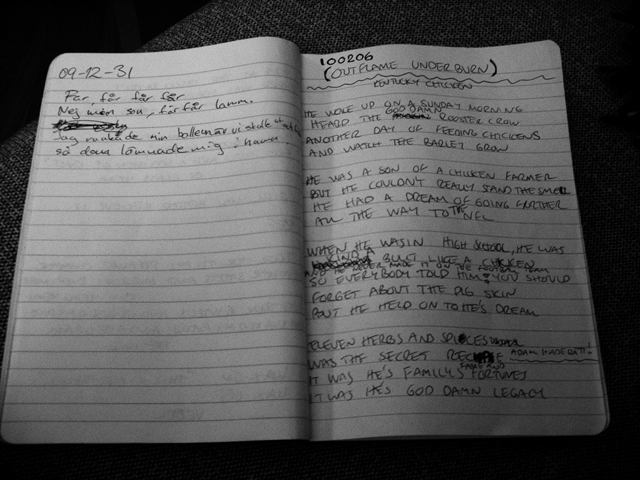 09-12-31
Far, får får får
Nej min son, får får lamm.
Jag rankade min
så dom lämnade mig i hamn
100206
(OUTFLAME UNDERBURN)
KENTUCKY CHICKEN
HE WOKE UP ON A SUNDAY MORNING
HEARD THE GOD DAMN ROOSTER CROW
ANOTHER DAY OF FEEDING CHICKENS
AND WATCH THE BARLEY GROW
HE WAS A SON OF A CHICKEN FARMER
BUT HE COULDN'T REALLY STAND THE SMELL
HE HAD A DREAM OF GOING FURTHER
ALL THE WAY TO THE NFL
WHEN HE WAS IN HIGH SCHOOL, HE WAS
KIND A BUILT LIKE A CHICKEN
AND HE NEVER MADE IT ON THE FOOTBALL TEAM
SO EVERYBODY TOLD HIM: YOU SHOULD
FORGET ABOUT THE PIG SKIN
BUT HE HELD ON TO HE'S DREAM
ELEVEN HERBS AND SPICES
WAS THE SECRET RECIPE
IT WAS HE'S FAMILY'S FORTUNES
IT WAS HE'S GOD DAMN LEGACY